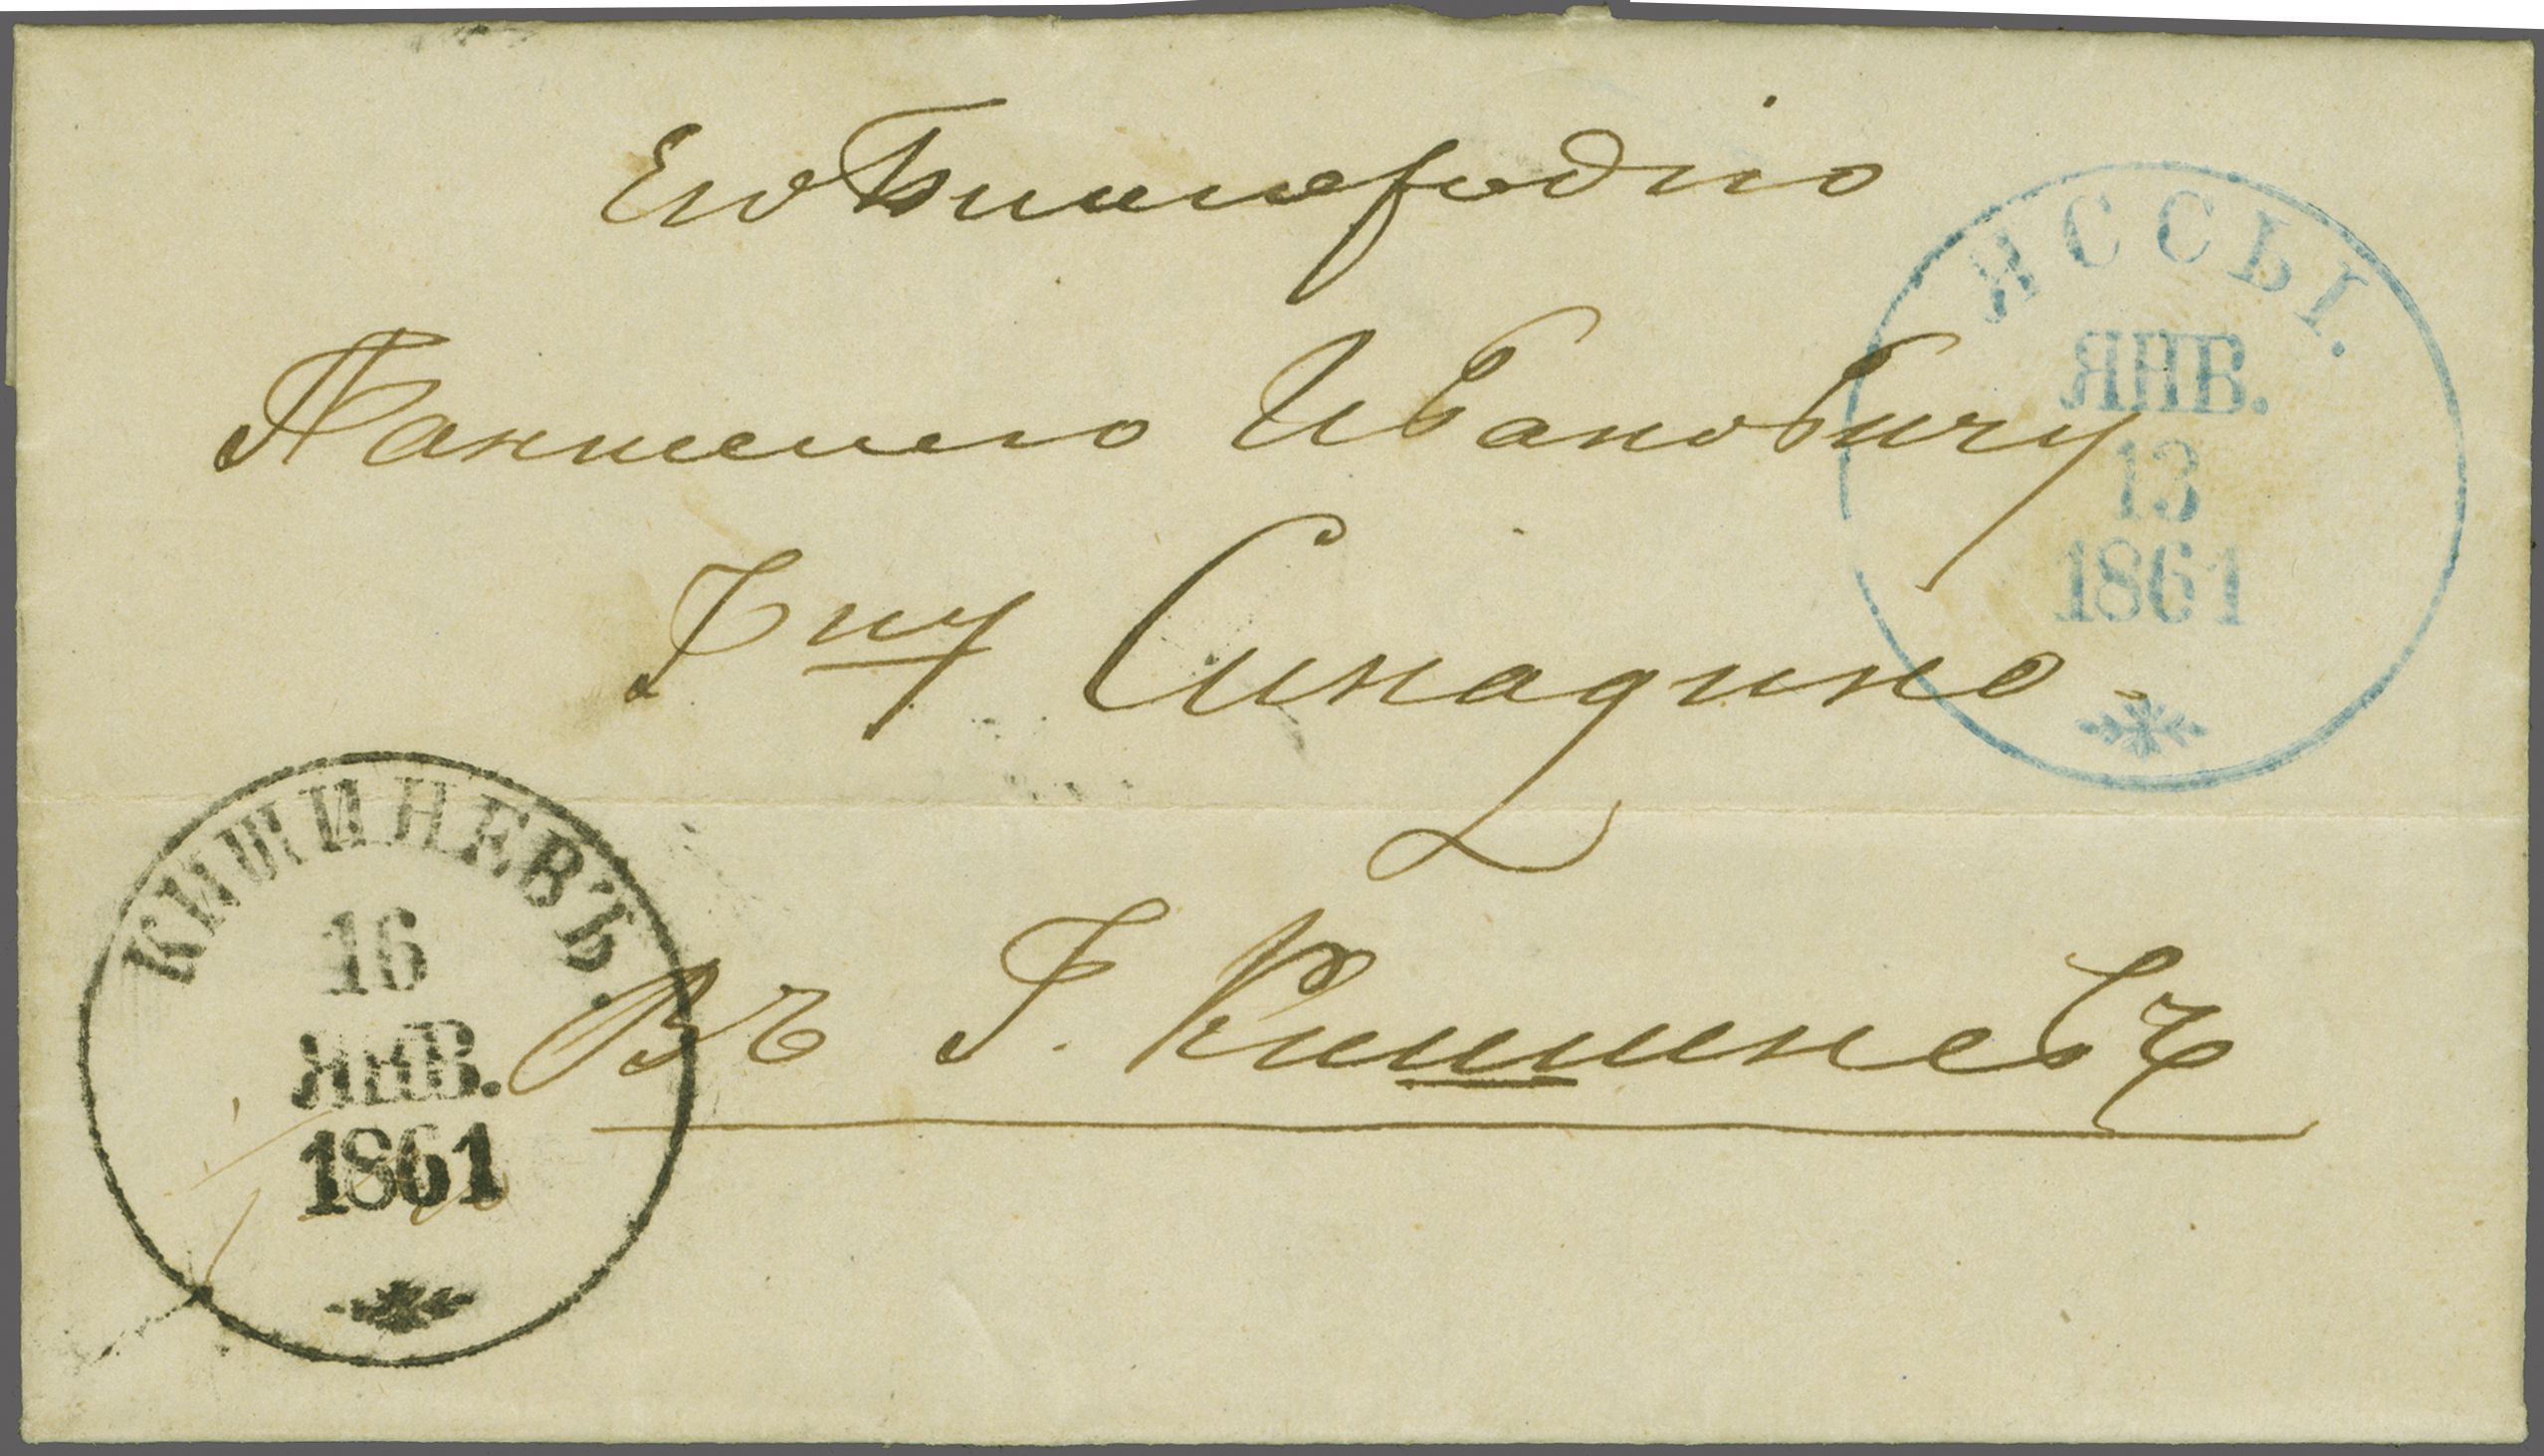 Его Благородію
Пантелею Ивановичу
Гну Синадино.
Въ Г. Кишиневъ
ЯССЫ.
ЯНВ.
13
1861
КИШИНЕВЪ.
16
ЯНВ.
1861